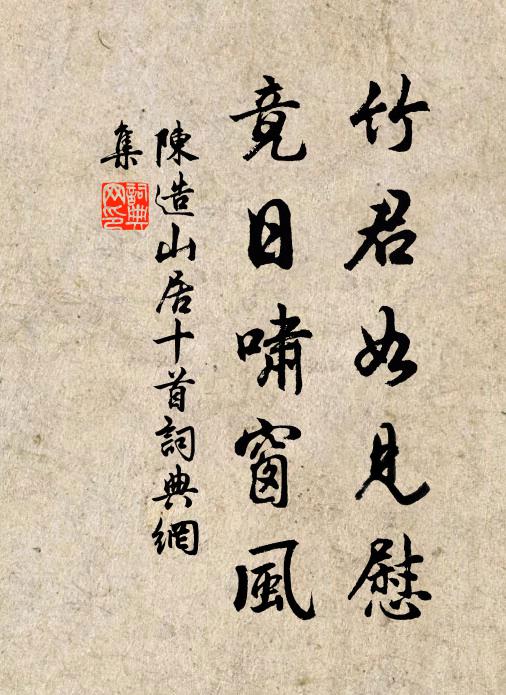 竹君如見慰
竟日嘯窗風
陳造山居十首詞典網
集
詞典
网印